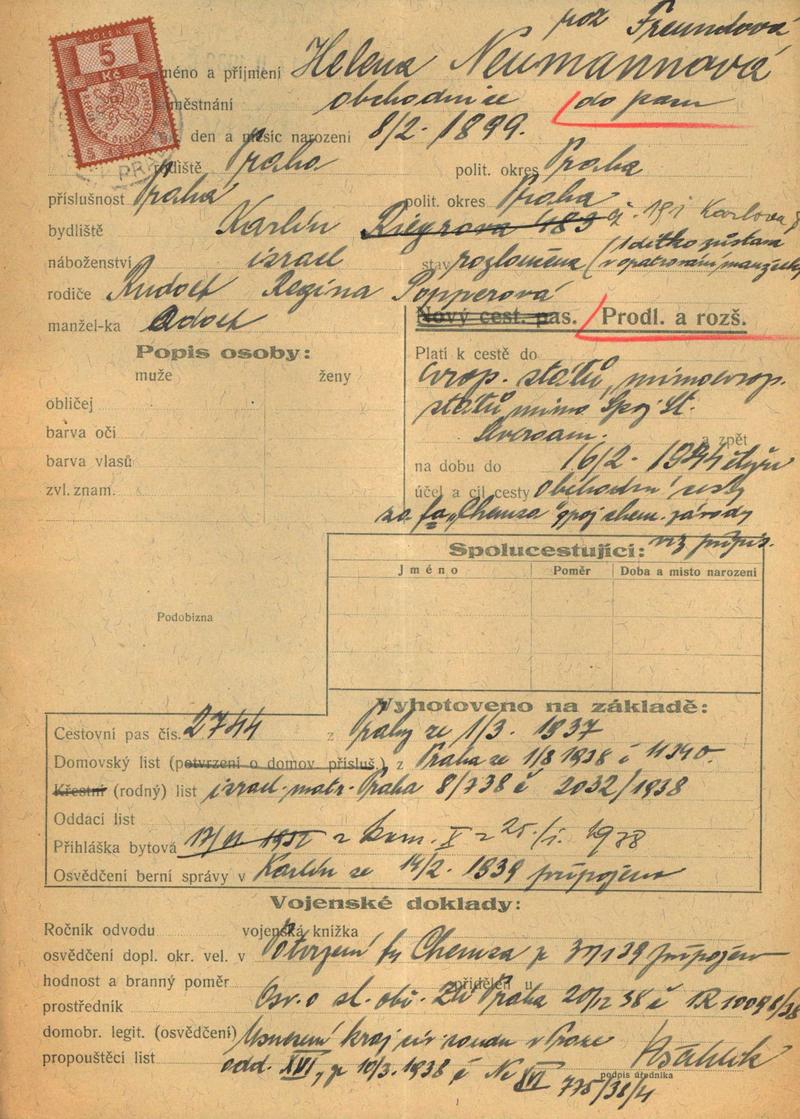 roz Freundová
KOLEK
5
Kč
REPUBLIKA ČESKOSLOVENSKÁ
PRA
méno a příjmení Helena Neumannová
městnání obchodnice do pasu
den a měsíc narození 8/2. 1899.
rodiště Praha polit. okres Praha
příslušnost Praha polit. okres Praha
bydliště Karlín Riegrova 183 Karlova
náboženství israel stav rozloučena (1 dítko zůstává
v opatrování manželky
rodiče Rudolf Regina Popperová
manžel-ka Adolf
Nový cest. pas. Prodl. a rozš.
Popis osoby:
muže ženy
obličej
barva oči
barva vlasů
zvl. znam.
Platí k cestě do
evrop. států, mimoevrop.
států mimo Spoj. St.
Severoam. a zpět
na dobu do 16/2. 1944 čtyři
účel a cíl cesty obchodní cesty
za fa „Chemza" spoj. chem. závody
viz připis.
Spolucestující:
Jméno Poměr Doba a místo narození
Podobizna
Vyhotoveno na základě:
Cestovní pas čís. 2744 z Prahy ze 1/3. 1937
Domovský list (potvrzení o domov. přísluš.) z Praha ze 1/8 1938 č 11340.
Křestní (rodný) list israel. matr. Praha 8/738 č 2032/1938
Oddací list
Přihláška bytová 17/VI 1932 z kom. X z 25./I. 1938
Osvědčení berní správy v Karlín ze 14/2. 1939 připojeno
Vojenské doklady:
Ročník odvodu vojenská knížka
osvědčení dopl. okr. vel. v Potvrzení fy Chemza připojeno
hodnost a branný poměr přidělen u
prostředník Osv. o st. obč. Praha 20/12 38 č 1R 10098/38
domobr. legit. (osvědčení) Usnesení kraj. civ. soudu v Praze
propouštěcí list odd. XVI, 10/3. 1938 č Nc XVI 775/38/4
podpis úředníka